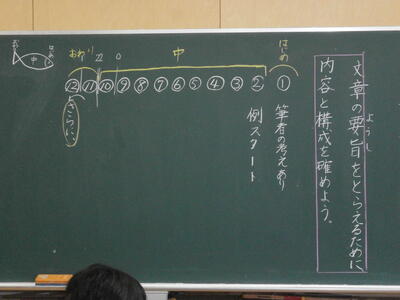 文章の要旨をとらえるために
ようし
内容と構成を確めよう。
はじめ
①
筆者の考えあり
中
② ③ ④ ⑤ ⑥ ⑦ ⑧ ⑨ ⑩
例スタート
おわり
⑪ ⑫
さらに、
中